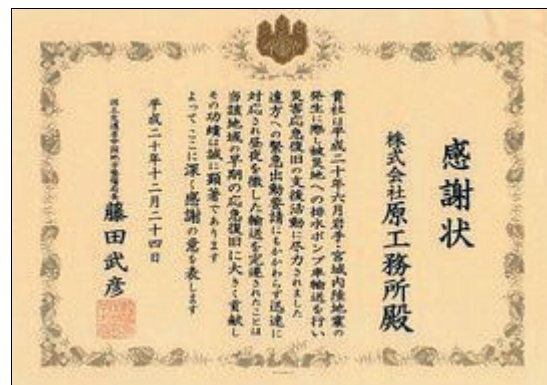 感謝状
株式会社原工務所殿
貴社は平成二十年六月岩手・宮城内陸地震の
発生に際し被災地への排水ポンプ車輸送を行い
災害応急復旧の支援活動に尽力されました
遠方への緊急出動要請にもかかわらず迅速に
対応され昼夜を徹した輸送を完遂されたことは
当該地域の早期の応急復旧に大きく貢献し
その功績は誠に顕著であります
よってここに深く感謝の意を表します
平成二十年十二月二十四日
国土交通省中国地方整備局長
藤田武彦